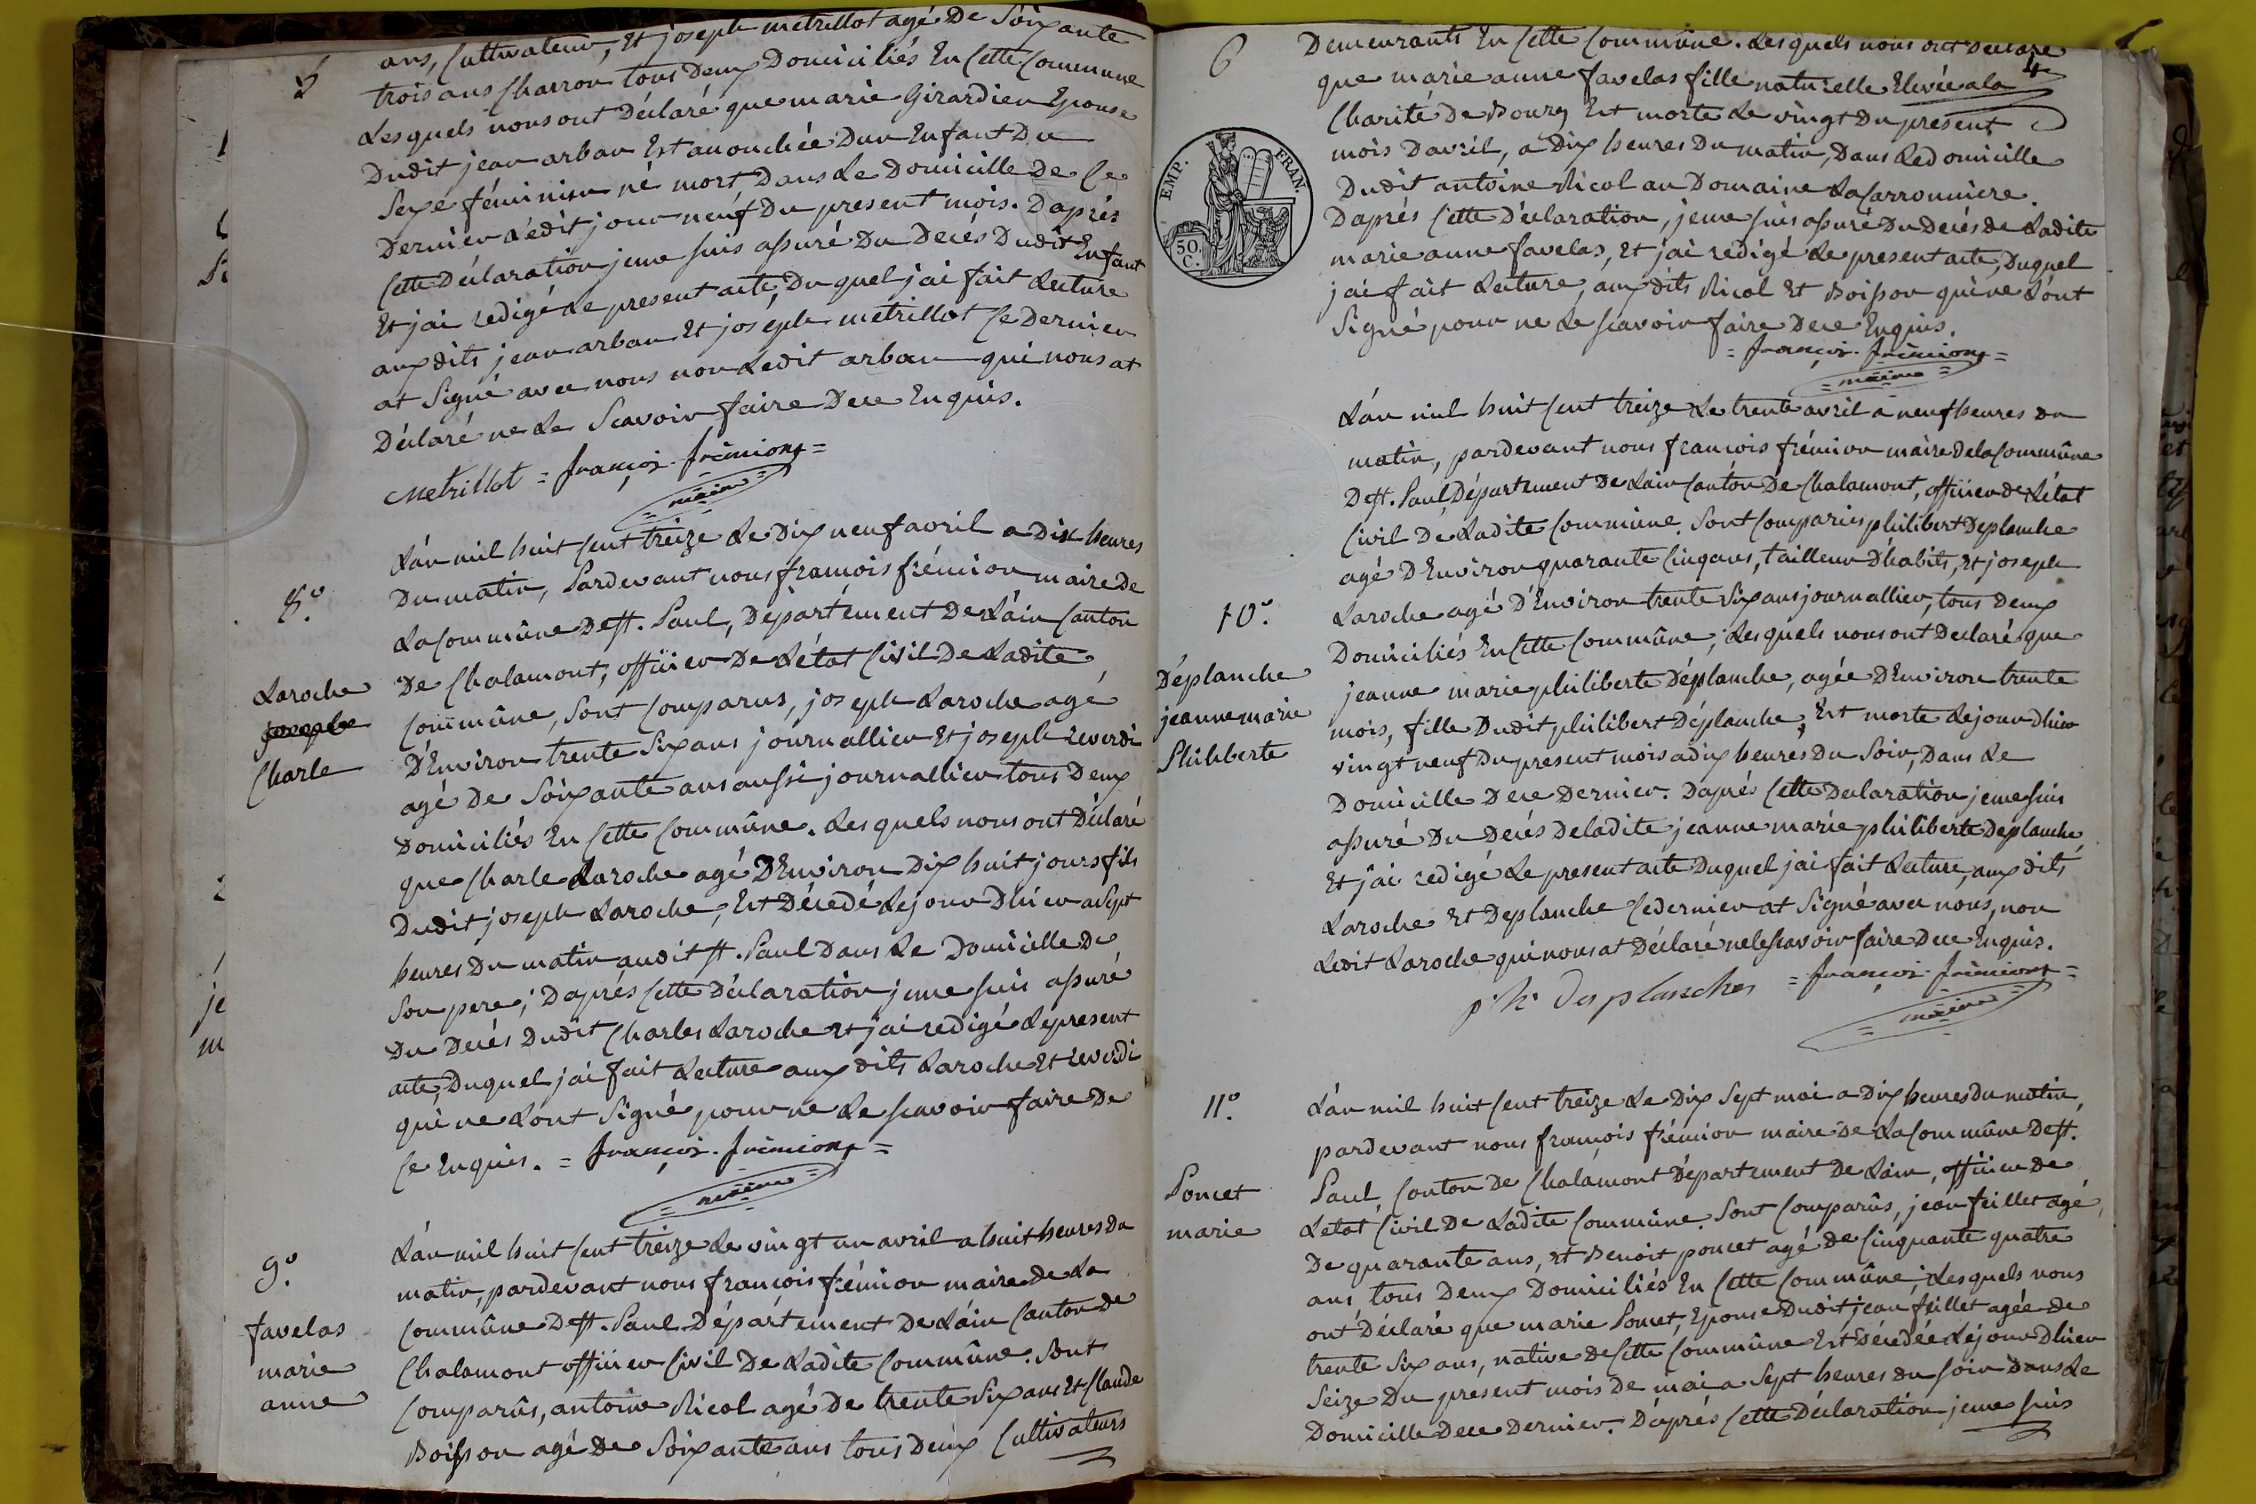 5
ans, Cultivateur, Et joseph metrillot agé De Soixante
trois ans Charron tous Deux Domiciliés En Cette Commune
Lesquels nous ont Déclaré que marie Girardieu Epouse
Dudit jean arban Est accouchée Dun Enfant Du
Sexe féminin né mort Dans Le Domicille De Ce
Dernier Ledit jour neuf Du present mois. Daprés
Cette Déclaration jeme suis assuré Du Decés Dudit Enfant
Et jai redigé Le present acte, Du quel jai fait Lecture
aux dits jean arban Et joséph metrillot Ce Dernier
at Signé avec nous non Ledit arban qui nous at
Déclaré ne Le Scavoir faire Dece Enquis.
Metrillot = françois frémiont =
= maire =
8º.
Laroche
joseph
Charle
Lán mil huit Cent treize Le Dix neuf avril a Dix heures
Du matin, Pardevant nous francois frémion maire De
La Commûne De St. Paul, Département De Láin Canton
De Chalamont, officier De Létat Civil De Ladite
Commûne, Sont Comparus, joseph Laroche agé
D'Environ trente Six ans journallier Et joseph reverdi
agé De Soixante ans aussi journallier tous Deux
Domiciliés En Cette Commûne. Lesquels nous ont Déclaré
que Charle Laroche agé D'Environ Dix huit jours fils
Dudit joseph Laroche, Est Décedé Le jour D'hier a Sept
heures Du matin audit St. Paul Dans Le Domicille De
Son pere; Daprés Cette Déclaration jeme suis assuré
Du Decés Dudit Charles Laroche Et jai redigé Le present
acte, Duquel jai fait Lecture aux dits Laroche Et reverdi
qui ne Lont Signé pour ne Le scavoir faire De
Ce Enquis. = françois frémiont =
= maire =
9º.
favelas
marie
anne
Lán mil huit Cent treize Le vingt un avril a huit heures Du
matin, pardevant nous françois frémion maire De La
Commûne De St. Paul Département De Láin Canton De
Chalamont officier Civil De Ladite Commûne. Sont
Comparûs, antoine Nicol agé De trente Six ans Et Claude
Boisson agé De Soixante ans tous Deux Cultivateurs
6
4
Demeurants En Cette Commûne. Lesquels nous ont Declaré
que marie anne favelas fille naturielle Elevée a la
Charité De Bourg Est morte Le vingt Du present
mois Davril, a Dix heures Du matin, Dans Le Domicille
Dudit antoine Nicol au Domaine Lacarronniere.
Daprés Cette Déclaration, jeme suis assuré Du Decés de Ladite
marie anne favelas, Et jai redigé Le present acte, Duquel
jai fait Lecture, aux dits Nicol Et Boisson qui ne Lont
Signé pour ne Le scavoir faire Dece Enquis.
= françois frémiont =
= maire =
EMP. FRAN.
50.
C.
10º.
Déplanche
jeanne marie
Philiberte
Lán mil huit Cent treize Le trente avril a neuf heures du
matin, pardevant nous francois frémion maire De la Commûne
De St. Paul, Département De Lain Canton De Chalamont, officier de Létat
Civil De Ladite Commûne. Sont Comparus philibert Deplanche
agé D'Environ quarante Cinq ans, tailleur D'habits, Et joseph
Laroche agé D'Environ trente Six ans journallier, tous Deux
Domiciliés En Cette Commûne; Lesquels nous ont Declaré que
jeanne marie philiberte Déplanche, agée D'Environ trente
mois, fille Dudit philibert Déplanche, Est morte Le jour D'hier
vingt neuf Du present mois a dix heures Du Soir, Dans Le
Domicille Dece Dernier. Daprés Cette Declaration jeme suis
assuré Du Decés De ladite jeanne marie philiberte Deplanche,
Et jai redigé Le present acte Duquel jai fait Lecture, aux dits
Laroche Et Deplanche Ce dernier at Signé avec nous, non
Ledit Laroche qui nous at Déclaré ne le scavoir faire Dece Enquis.
ph Desplanches = françois frémiont =
= maire =
11º.
Poncet
marie
Lán mil huit Cent treize Le Dix Sept mai a Dix heures Du matin,
pardevant nous françois frémion maire De La Commûne De St.
Paul, Canton De Chalamont Département De Lain, officier De
Letat Civil De Ladite Commûne. Sont Comparûs, jean feillet agé
De quarante ans, Et Benoit poncet agé de Cinquante quatre
ans tous Deux Domiciliés En Cette Commûne; Lesquels nous
ont Déclaré que marie Poncet, Epouse Dudit jean feillet agée de
trente Six ans, native De Cette Commûne Est Décedée Le jour D'hier
Seize Du present mois De mai a Sept heures du soir Dans Le
Domicille Dece Dernier. Daprés Cette Déclaration jeme suis